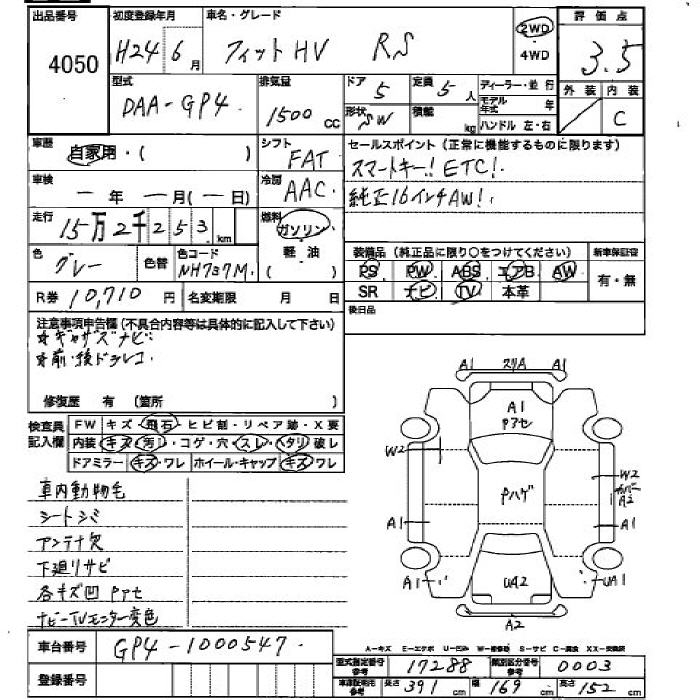 出品番号 初度登録年月 車名・グレード 評価点
4050 H24 6月 フィットHV RS 2WD ・ 4WD 3.5
型式 排気量 ドア 定員 ディーラー・並行 外装 内装
DAA-GP4 1500 cc 5 5人 モデル年式 年 C
形状 SW 積載 kg ハンドル 左・右
車歴 自家用・( ) シフト FAT セールスポイント(正常に機能するものに限ります)
スマートキー! ETC!
車検 ー年 ー月(ー日) 冷房 AAC 純正16インチAW!
走行 15万2千253km 燃料 ガソリン 軽油 ( )
装備品(純正品に限り○をつけてください) 新車保証書
色 グレー 色替 色コード NH737M PS PW ABS エアB AW 有・無
R券 10,710円 名変期限 月 日 SR ナビ TV 本革
後日品
注意事項申告欄(不具合内容等は具体的に記入して下さい)
*ギャザズナビ
*前・後ドラレコ
修復歴 有 (箇所 )
検査員記入欄 FW キズ・飛石・ヒビ割・リペア跡・X要
内装 キズ・汚レ・コゲ・穴・スレ・ヘタリ 破レ
ドアミラー キズ・ワレ ホイール・キャップ キズ・ワレ
車内動物毛
シートシミ
アンテナ欠
下廻リサビ
各キズ凹 Pアセ
ナビーTVモニター変色
A1 スリA A1
A1
Pアセ
W2 W2
カバー
A2
Pハゲ
A1 A1
A1 UA2 UA1
A2
車台番号 GP4-1000547
登録番号
A-キズ E-エクボ U-凹み W-補修跡 S-サビ C-腐食 XX-交換跡
型式指定番号 参考 17288 類別区分番号 参考 0003
車庫証明用 参考 長さ 391 cm 幅 169 cm 高さ 152 cm